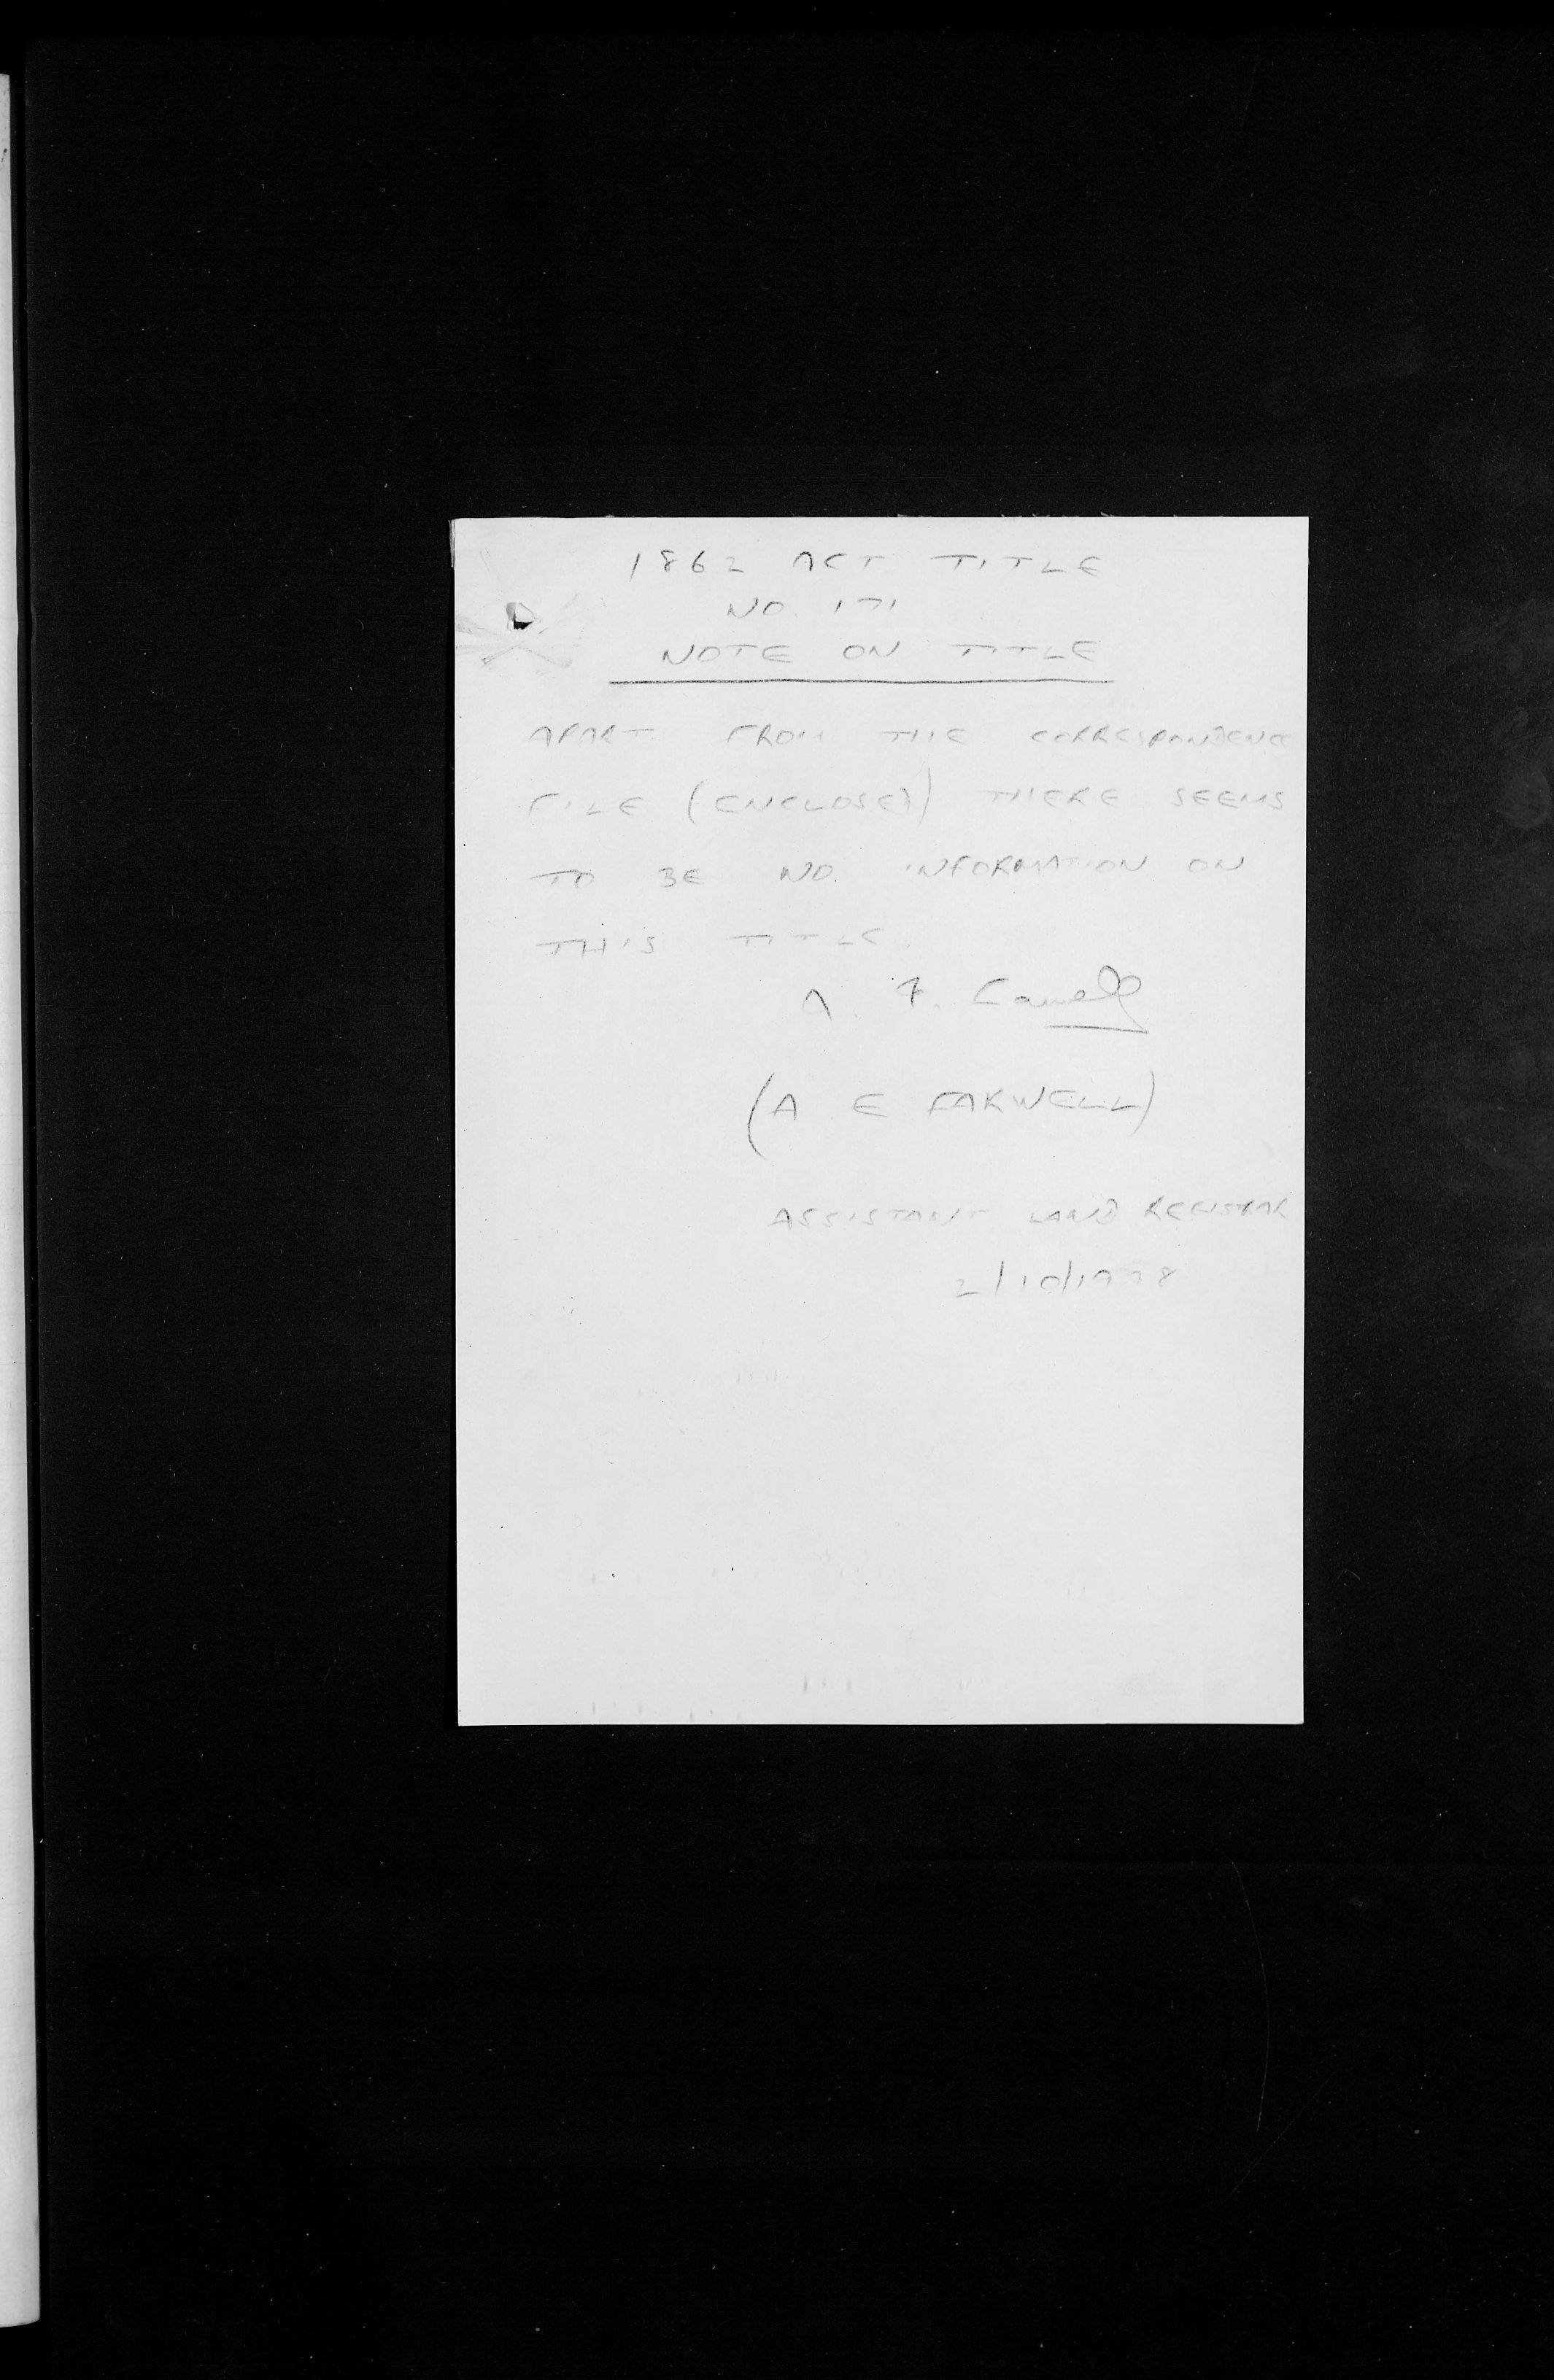 1862 ACT TITLE
NO. 171
NOTE ON TITLE
APART FROM THE CORRESPONDENCE
FILE (ENCLOSED) THERE SEEMS
TO BE NO INFORMATION ON
THIS TITLE.
A. E. Farwell
(A E FARWELL)
ASSISTANT LAND REGISTRAR
2/10/1978